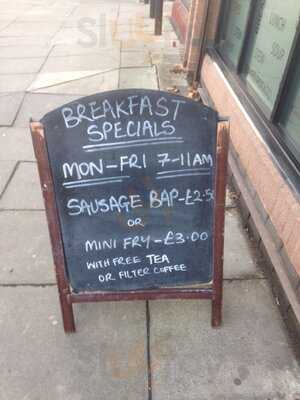 BREAKFAST
SPECIALS
MON-FRI 7-11AM
SAUSAGE BAP-£2.50
OR
MINI FRY-£3.00
WITH FREE TEA
OR FILTER COFFEE
LUNCH
SOUP